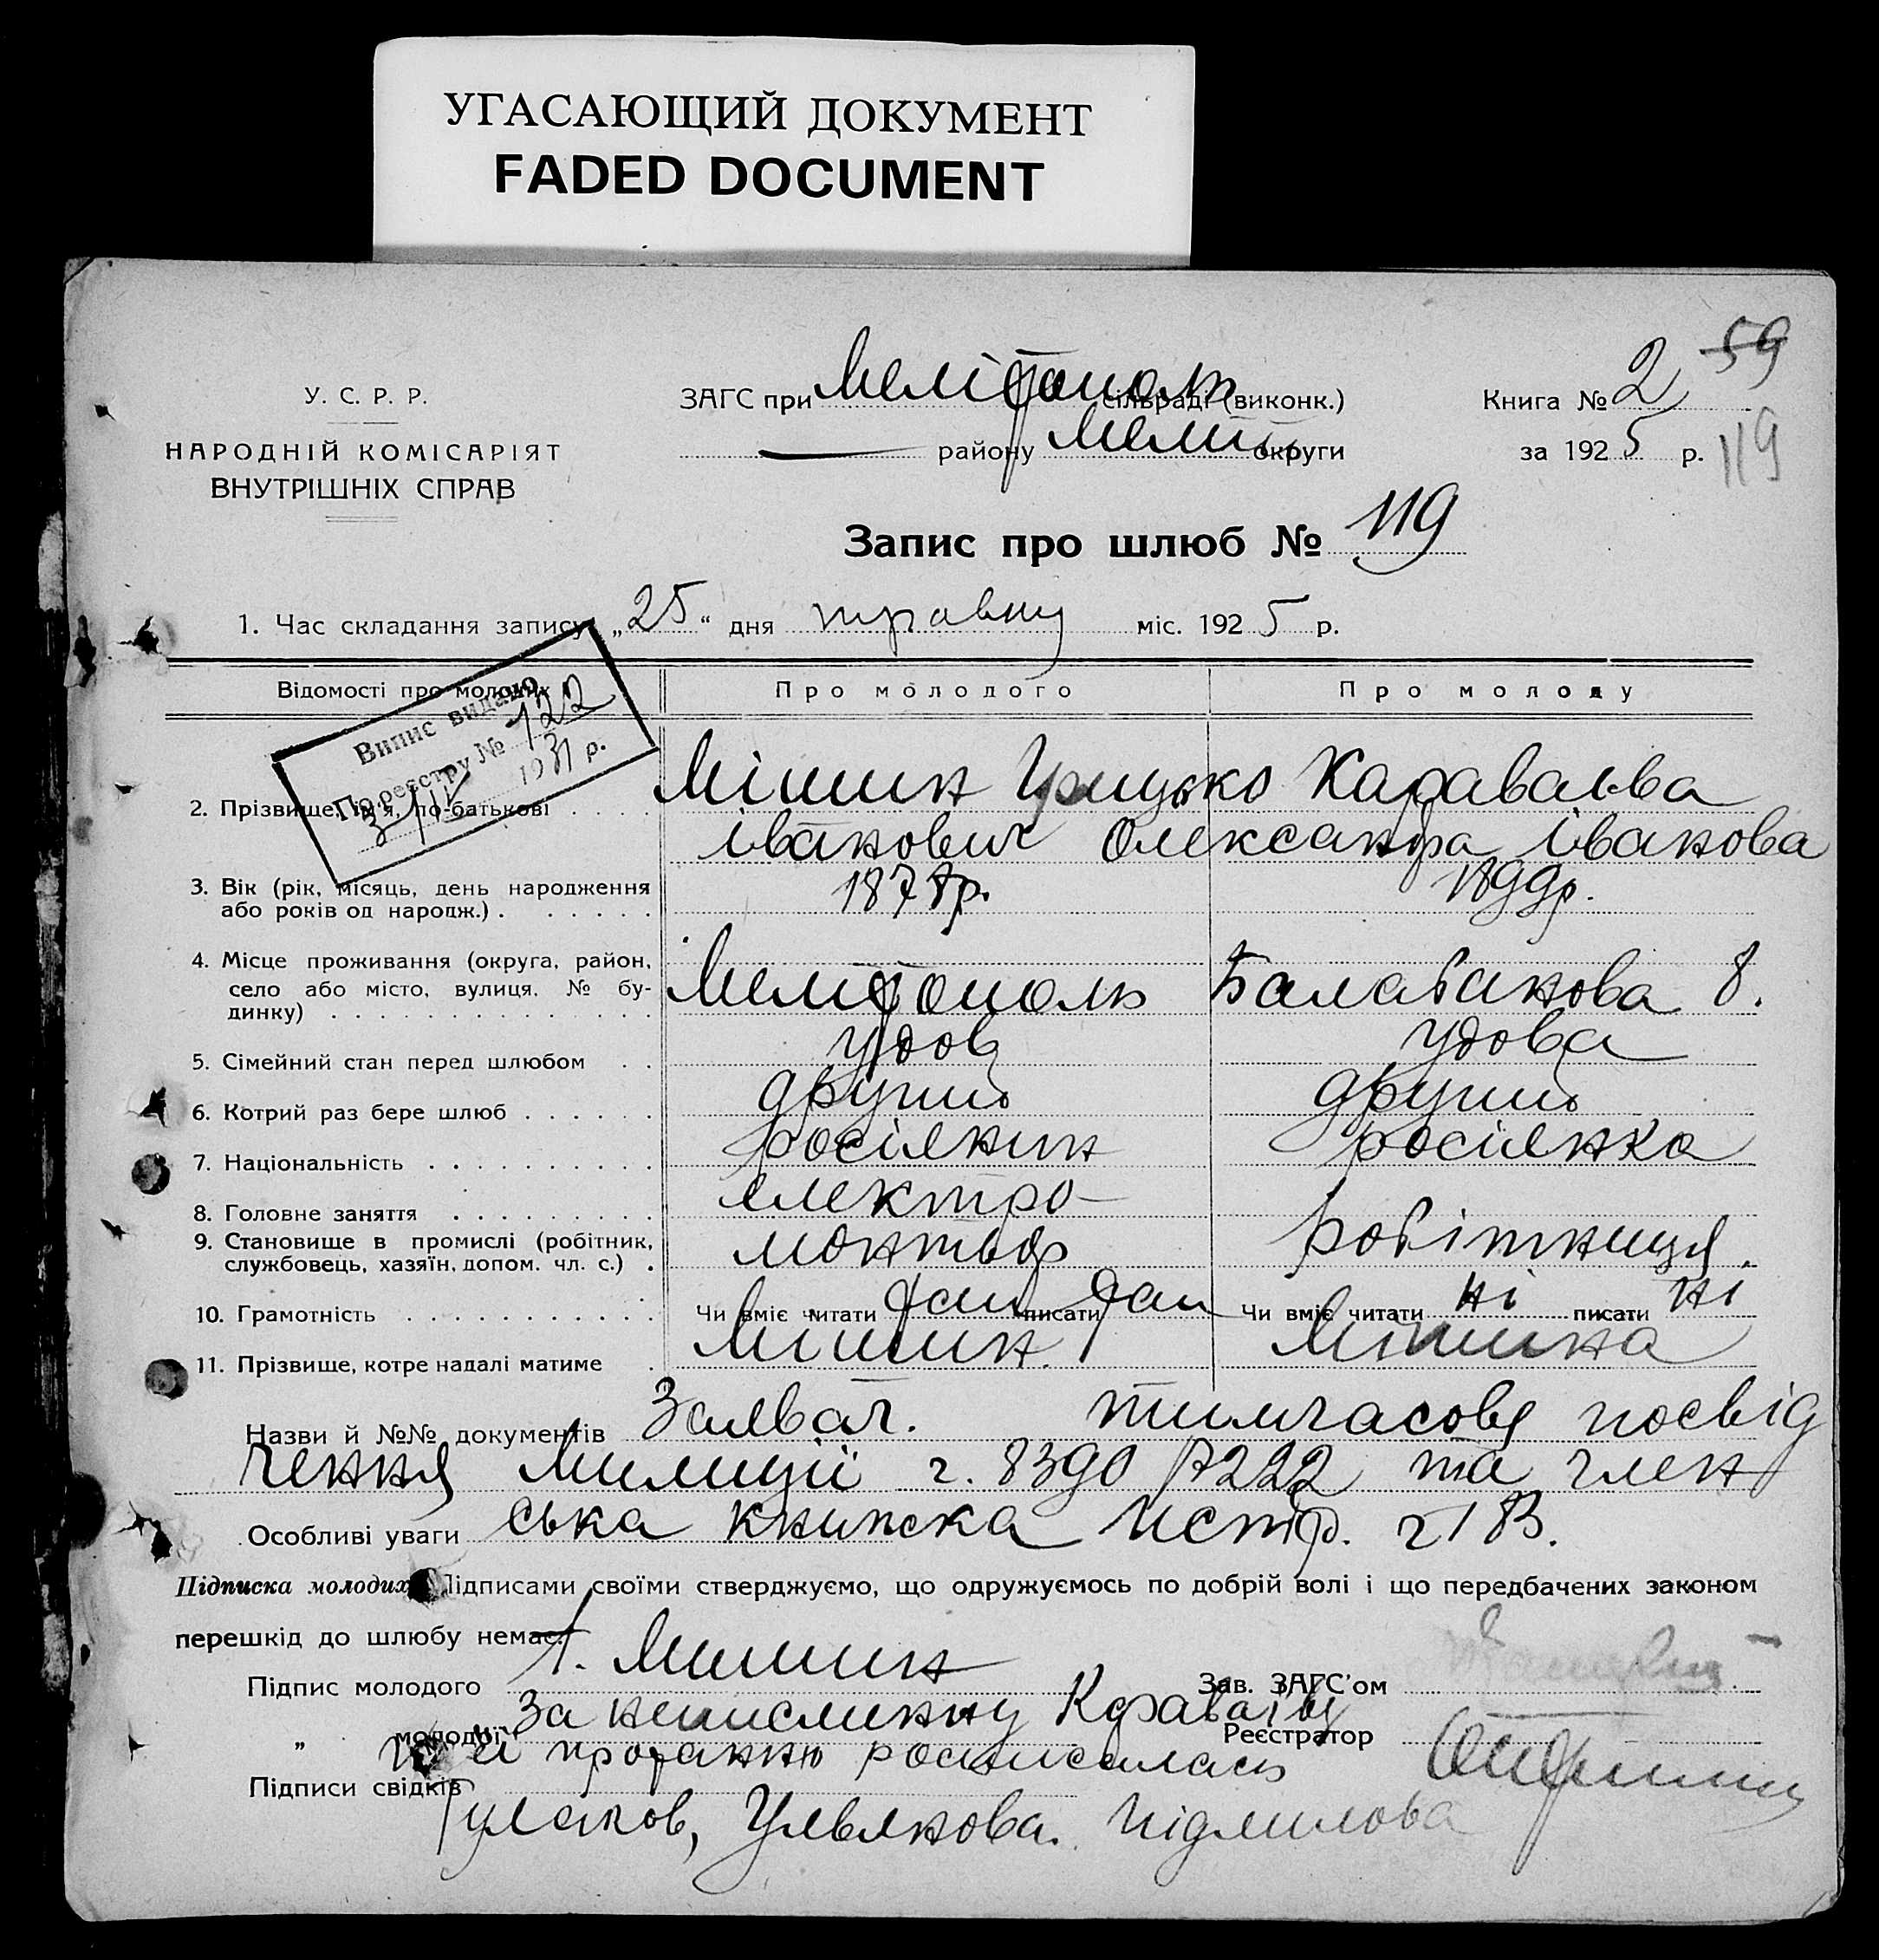 УГАСАЮЩИЙ ДОКУМЕНТ
FADED DOCUMENT
59
У. С. Р. Р.
НАРОДНІЙ КОМІСАРІЯТ
ВНУТРІШНІХ СПРАВ
ЗАГС при Мелітополь сільраді (виконк.)
району Мелит округи
Книга № 2
за 1925 р.
119
Запис про шлюб № 119
1. Час складання запису „25“ дня травну міс. 1925 р.
Відомості про молодих Про молодого Про молоду
Випис видано
По реєстру № 122
3/III 1931 р.
2. Прізвище, ім'я, по-батькові Мішин Грицько Караваєва
Іванович Олександра Іванова
3. Вік (рік, місяць, день народження 1878р. 1899р.
або років од народж.)
4. Місце проживання (округа, район,
село або місто, вулиця, № бу- Мелітополь Балабанова 8.
динку)
5. Сімейний стан перед шлюбом удов удова
6. Котрий раз бере шлюб другий другий
7. Національність росіянин росіянка
8. Головне заняття електро-
9. Становище в промислі (робітник, монтьор робітниця.
службовець, хазяїн, допом. чл. с.)
10. Грамотність Чи вміє читати так писати так Чи вміє читати ні писати ні
11. Прізвище, котре надалі матиме Мішин Мішина
Назви й №№ документів тимчасове посвід
чення милиції ч. 8390/7222 та член
Особливі уваги ська книжка ч 183.
Підписка молодих. Підписами своїми стверджуємо, що одружуємось по добрій волі і що передбачених законом
перешкід до шлюбу немає.
Підпис молодого Г. Мишин Зав. ЗАГС'ом
„ молодої За неписменну Караваїву Реєстратор
її проханню росписалась
Підписи свідків
Гулаков, Ульянова. Підмилова